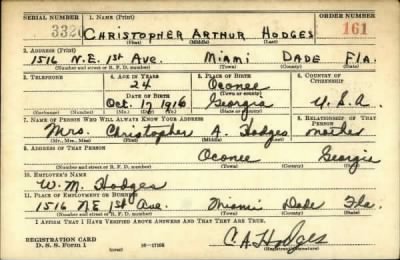 SERIAL NUMBER 1. NAME (Print) ORDER NUMBER
332 CHRISTOPHER ARTHUR HODGES 161
(First) (Middle) (Last)
2. ADDRESS (Print)
1516 N.E. 1st Ave. Miami Dade Fla.
(Number and street or R. F. D. number) (Town) (County) (State)
3. TELEPHONE 4. AGE IN YEARS 5. PLACE OF BIRTH 6. COUNTRY OF CITIZENSHIP
24 Oconee
DATE OF BIRTH (Town or county)
Oct. 17 1916 Georgia U.S.A.
(Exchange) (Number) (Mo.) (Day) (Yr.) (State or country)
7. NAME OF PERSON WHO WILL ALWAYS KNOW YOUR ADDRESS 8. RELATIONSHIP OF THAT PERSON
Mrs. Christopher A. Hodges mother
(Mr., Mrs., Miss) (First) (Middle) (Last)
9. ADDRESS OF THAT PERSON
Oconee Georgia
(Number and street or R. F. D. number) (Town) (County) (State)
10. EMPLOYER'S NAME
W. M. Hodges
11. PLACE OF EMPLOYMENT OR BUSINESS
1516 N.E 1st Ave. Miami Dade Fla.
(Number and street or R. F. D. number) (Town) (County) (State)
I AFFIRM THAT I HAVE VERIFIED ABOVE ANSWERS AND THAT THEY ARE TRUE.
REGISTRATION CARD
D. S. S. Form 1 (over) 16—17105 C.A. Hodges
(Registrant's signature)